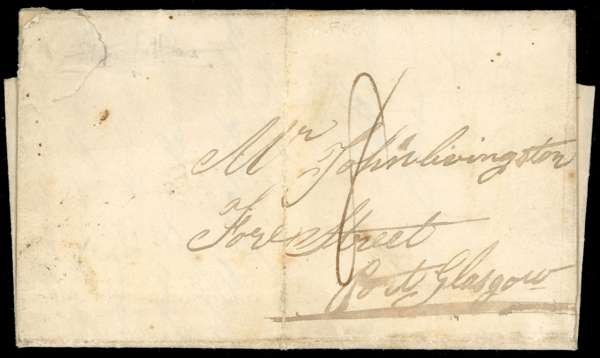 Mr John Livingston
Fore Street
Port Glasgow